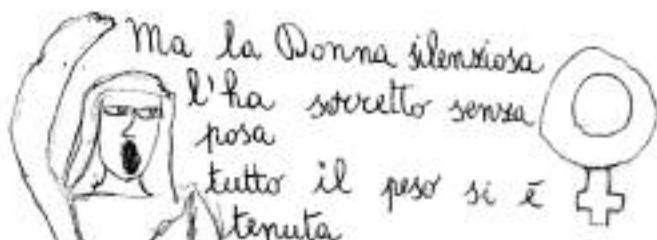 Ma la Donna silenziosa
l'ha sorretto senza
posa
tutto il peso si è
tenuta